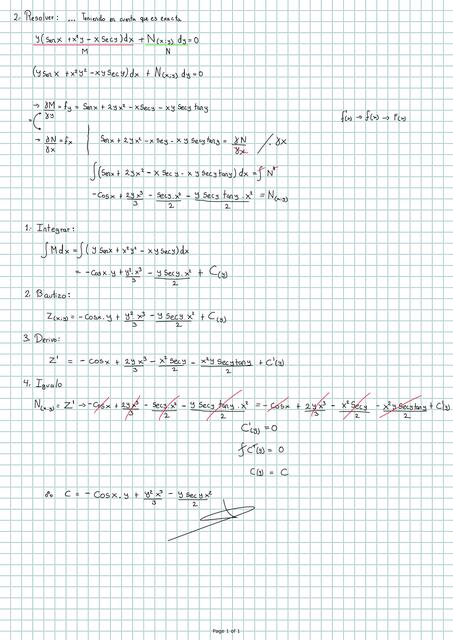 2. Resolver: ... Teniendo en cuenta que es exacta
y(Senx + x²y - x Secy)dx + N(x;y) dy = 0
M N
(ySenx + x²y² - xy Secy)dx + N(x;y) dy = 0
→ γM/γy = fy = Senx + 2yx² - x Secy - xy Secy tany f(x) → f'(x) → f''(x)
=
→ γN/γx = fx | Senx + 2yx² - x Secy - xy Secy tany = γN/γx /· γx
∫(Senx + 2yx² - x Secy - xy Secy tany) dx = ∫ N'
-Cosx + 2yx³/3 - Secy·x²/2 - y Secy tany · x²/2 = N(x;y)
1. Integrar:
∫Mdx = ∫(y Senx + x²y² - xy Secy)dx
= -Cosx·y + y²·x³/3 - y Secy·x²/2 + C(y)
2. Bautizo:
Z(x;y) = -Cosx·y + y²·x³/3 - y Secy x²/2 + C(y)
3. Derivo:
Z' = -Cosx + 2yx³/3 - x² Secy/2 - x²y Secy tany/2 + C'(y)
4. Igualo
N(x;y) = Z' → -Cosx + 2yx³/3 - Secy·x²/2 - y Secy tany · x²/2 = -Cosx + 2yx³/3 - x² Secy/2 - x²y Secy tany/2 + C'(y)
C'(y) = 0
∫C'(y) = 0
C(y) = C
∴ C = -Cosx·y + y²x³/3 - y Secy x²/2
Page 1 of 1